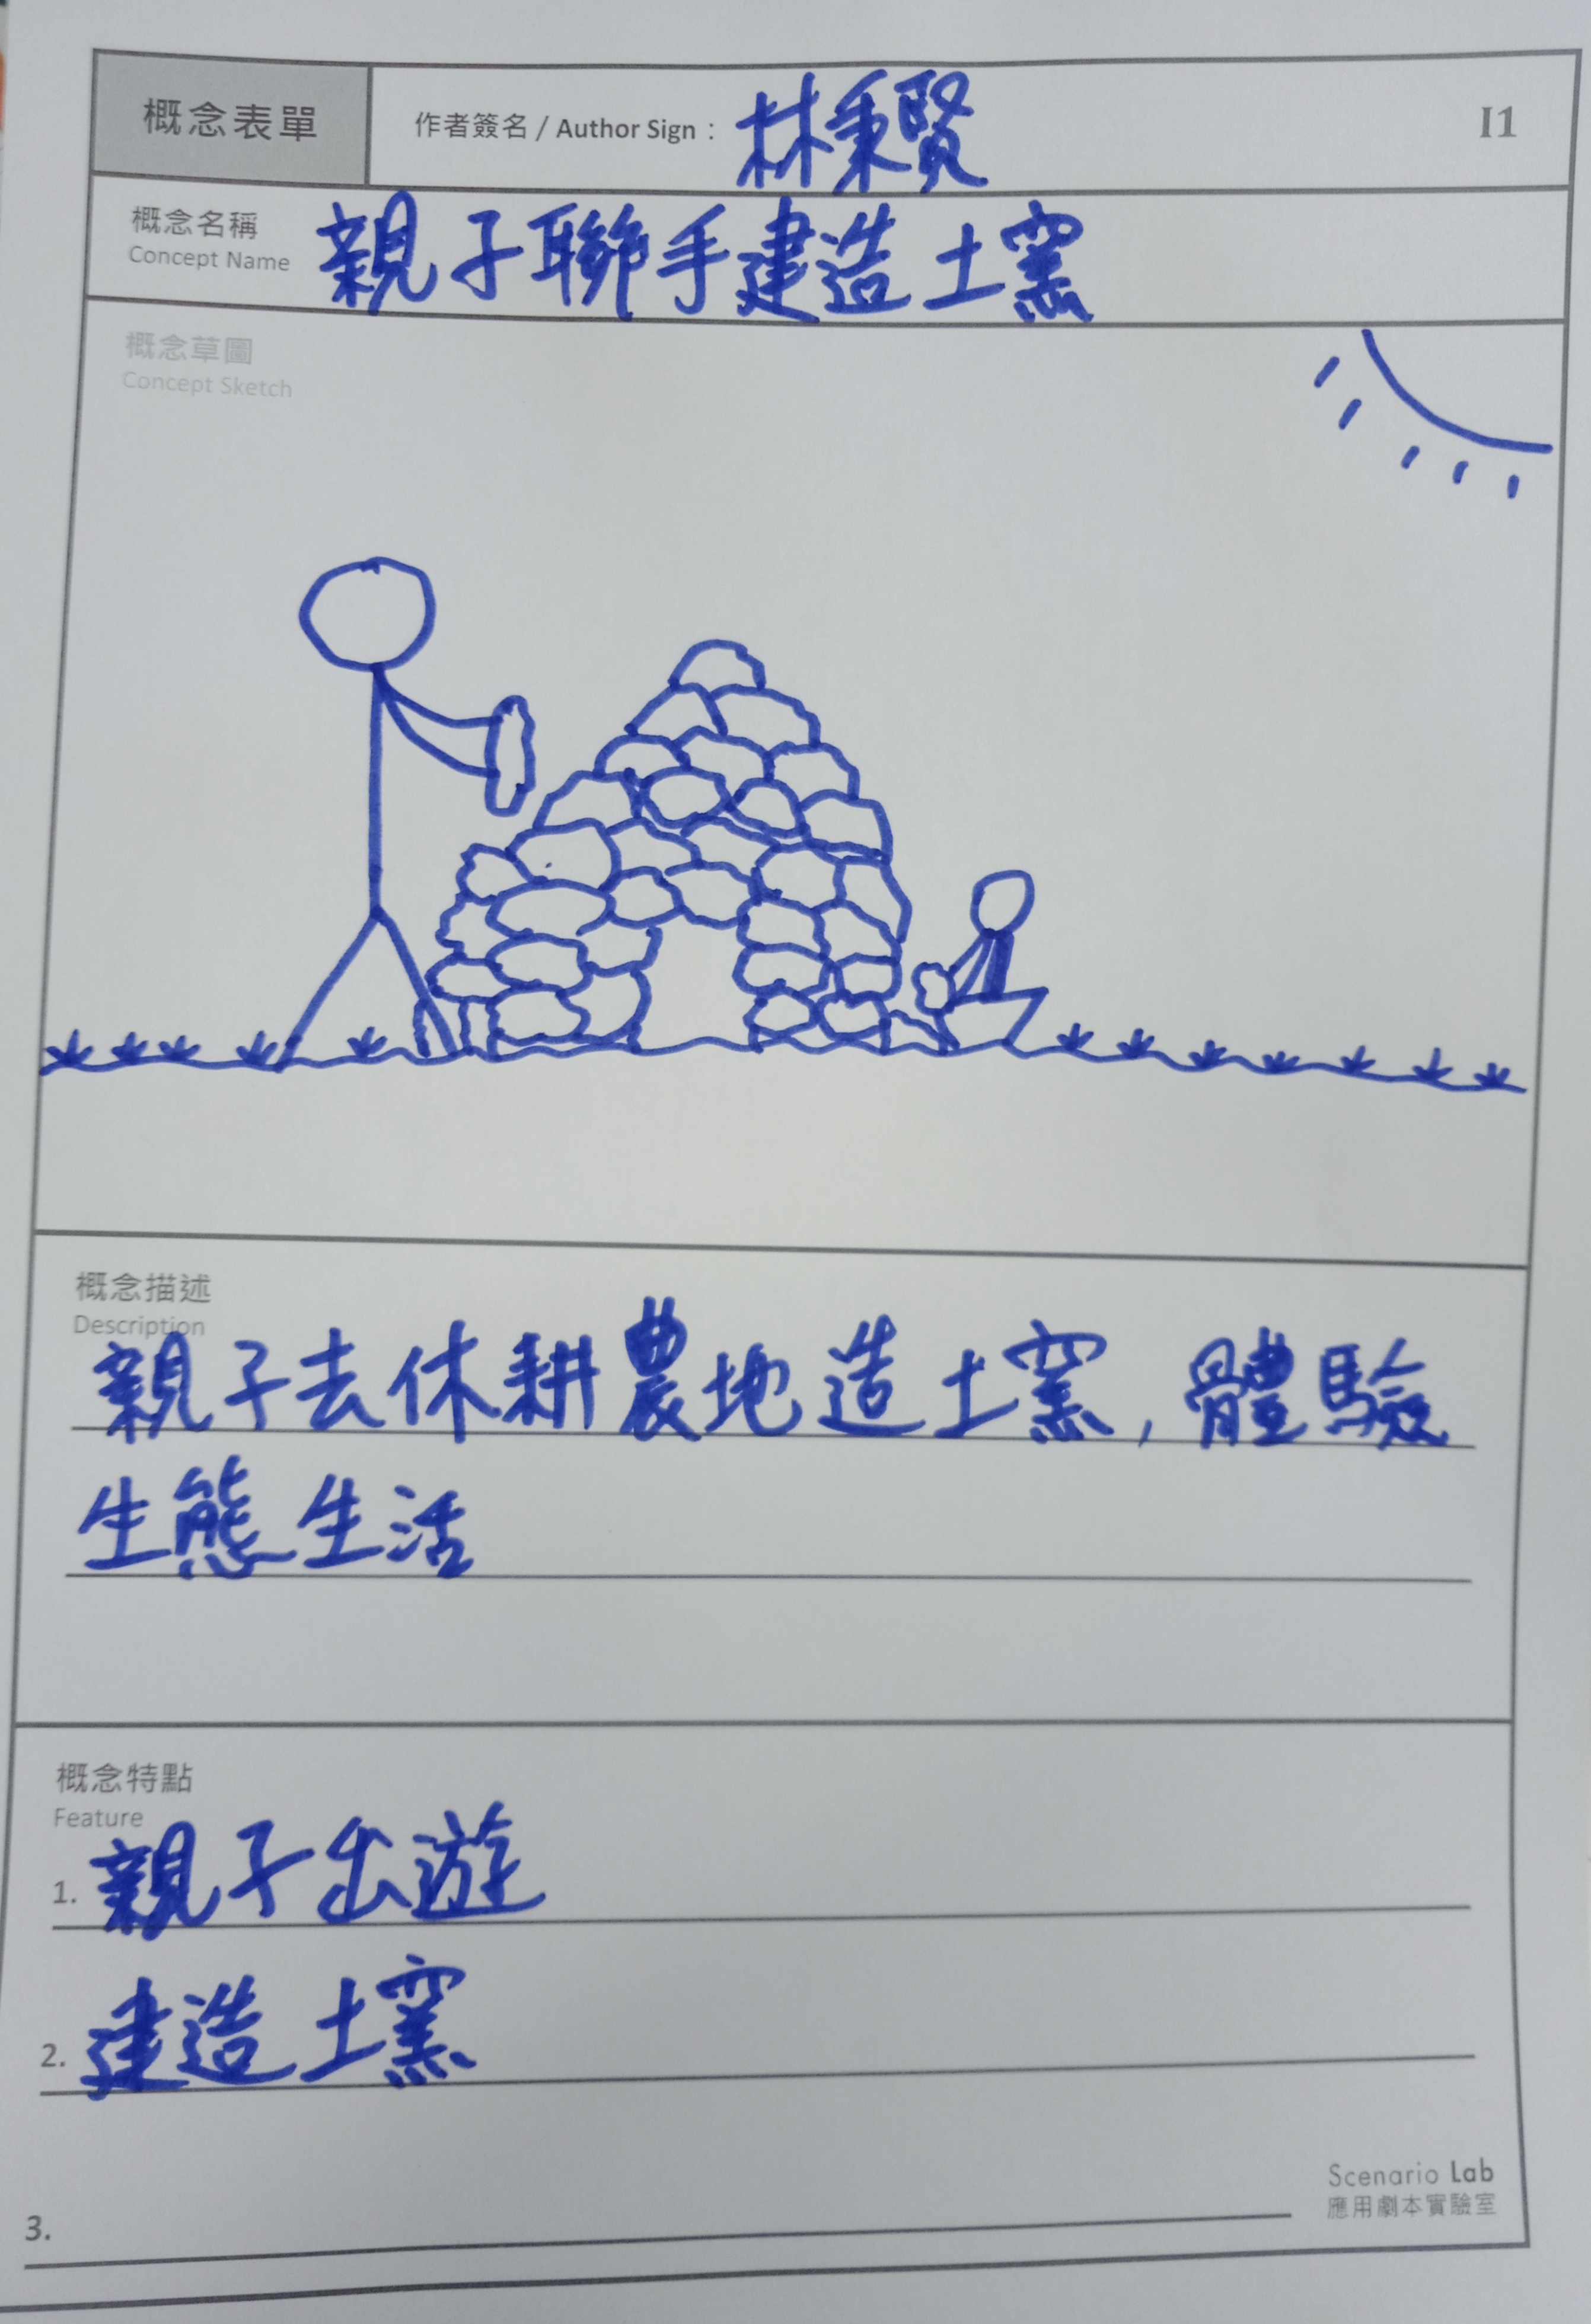 概念表單
作者簽名 / Author Sign : 林秉賢
I1
概念名稱
Concept Name
親子聯手建造土窯
概念草圖
Concept Sketch
概念描述
Description
親子去休耕農地造土窯, 體驗
生態生活
概念特點
Feature
1. 親子出遊
2. 建造土窯
3.
Scenario Lab
應用劇本實驗室